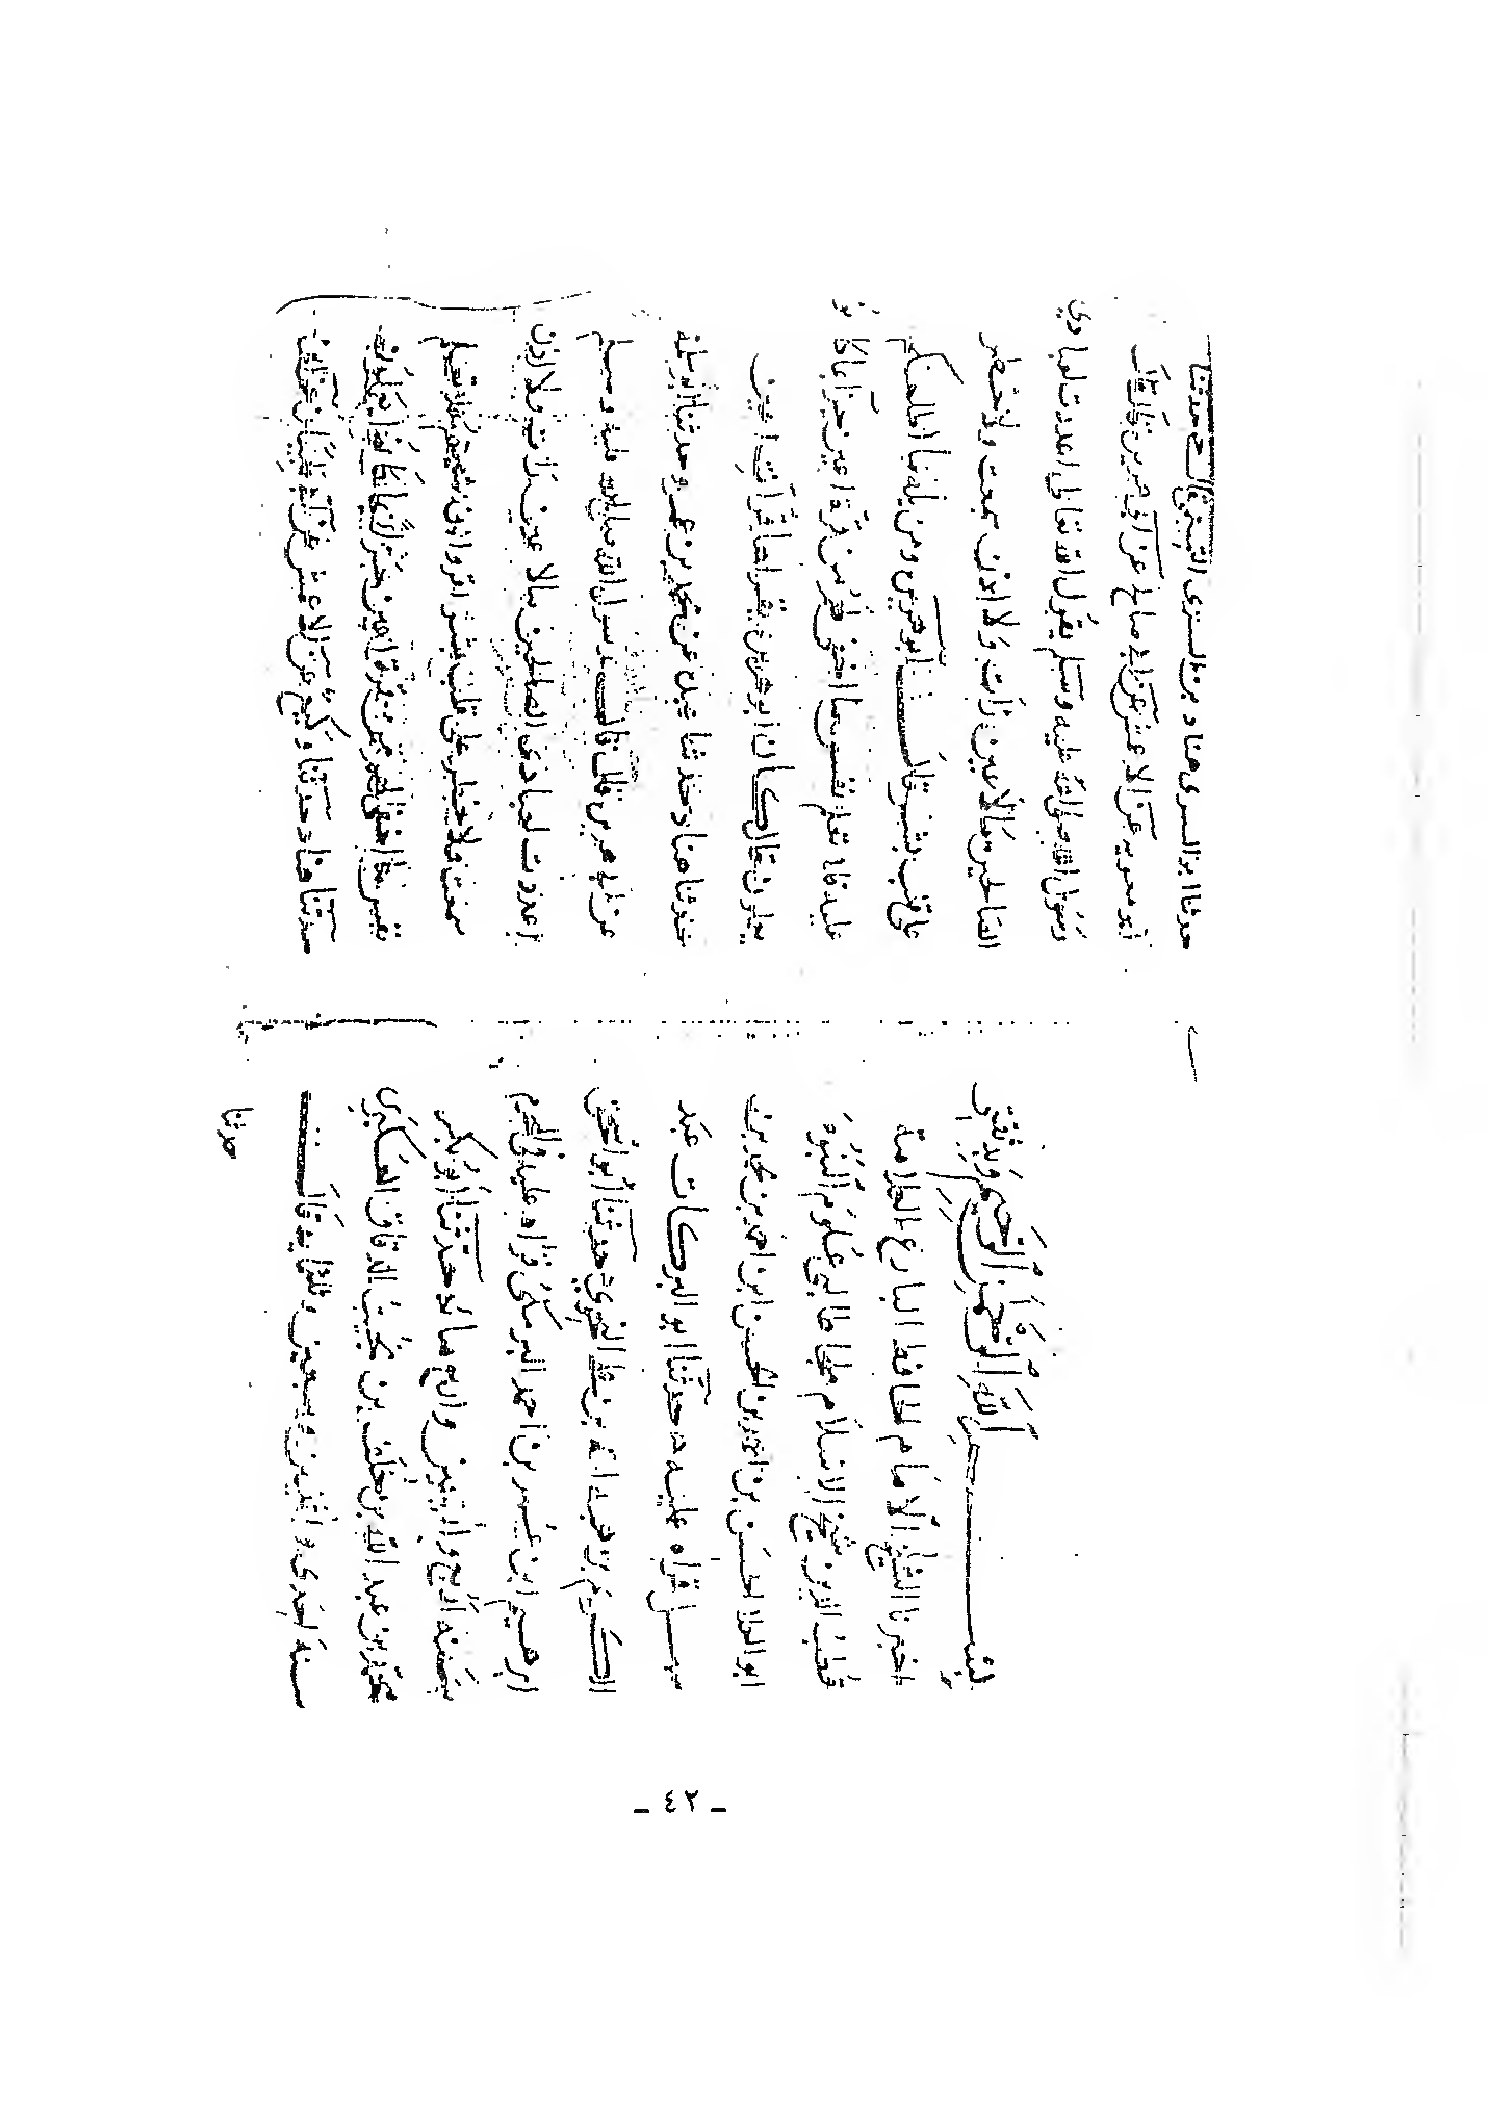 بسم الله الرحمن الرحيم وبه ثقتي
اخبرنا الشيخ الامام الحافظ البارع العلامة
قطب الدين شيخ الاسلام علوم النبوة
ابو العلا الحسن بن احمد بن الحسن ابن احمد بن محمد بن
سهل قراه عليه حدثنا ابو البركات عبد
الكريم بن هبه الله بن علي النحوي حدثنا أبو اسحق
ابرهيم ابن عمر بن احمد البرمكي قراه عليه في المحرم
سنة اربع واربعين واربع مائه حدثنا أبو بكر
محمد بن عبد الله بن خلف بن بخيت الدقاق العكبري
سنة احدى وسبعين وثلثمايه قال
حدثنا
حدثنا ابو السري هناد بن السري التميمي حدثنا
أبو معويه عن الاعمش عن ابي صالح عن ابي هريرة قال قال
رسول الله صلى الله عليه وسلم يقول الله تعالى اعددت لعبادي
الصالحين مالا عين رأت ولا اذن سمعت ولا خطر
على قلب بشر قال أبو هريرة ومن بله ما اطلعكم
عليه فلا تعلم نفس ما اخفي لهم من قرة اعين جزا بما كانو
يعملون قال كان ابو هريرة يقراها قرات اعين
حدثنا هناد حدثنا عبدة عن محمد بن عمرو حدثنا أبو سلمه
عن ابي هريرة قال قال رسول الله صلى الله عليه وسلم
اعددت لعبادي الصالحين مالا عين رأت ولا اذن
سمعت ولا خطر على قلب بشر اقروا ان شيتم فلا تعلم
نفس ما اخفي لهم من قرة اعين جزا بما كانوا يعملون
حدثنا هناد حدثنا وكيع عن الاعمش عن